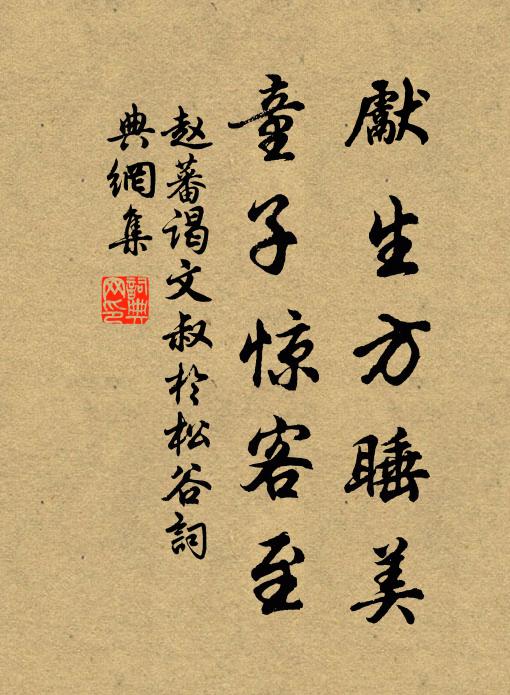 獻生方睡美
童子惊客至
赵蕃谒文叔於松谷詞
典網集
詞典
网印